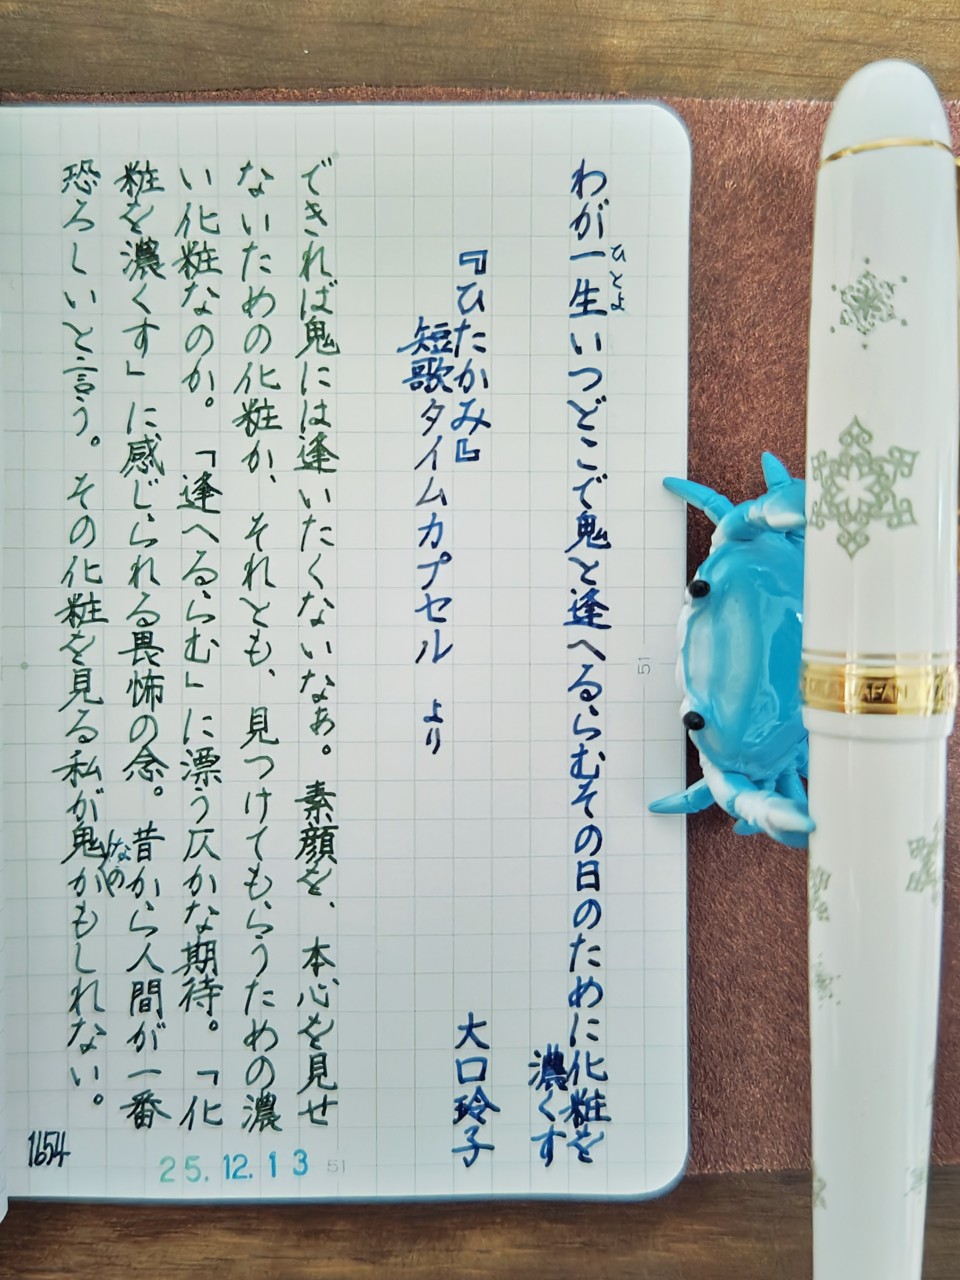 わが一生いつどこで鬼と逢へるらむその日のために化粧を
ひとよ
濃くす
『ひたかみ』
大口玲子
短歌タイムカプセル より
できれば鬼には逢いたくないなぁ。素顔を、本心を見せ
ないための化粧か、それとも、見つけてもらうための濃
い化粧なのか。「逢へるらむ」に漂う仄かな期待。「化
粧を濃くす」に感じられる畏怖の念。昔から人間が一番
恐ろしいと言う。その化粧を見る私が鬼かもしれない。
なの
1654
25.12.13
51
51
JAPAN